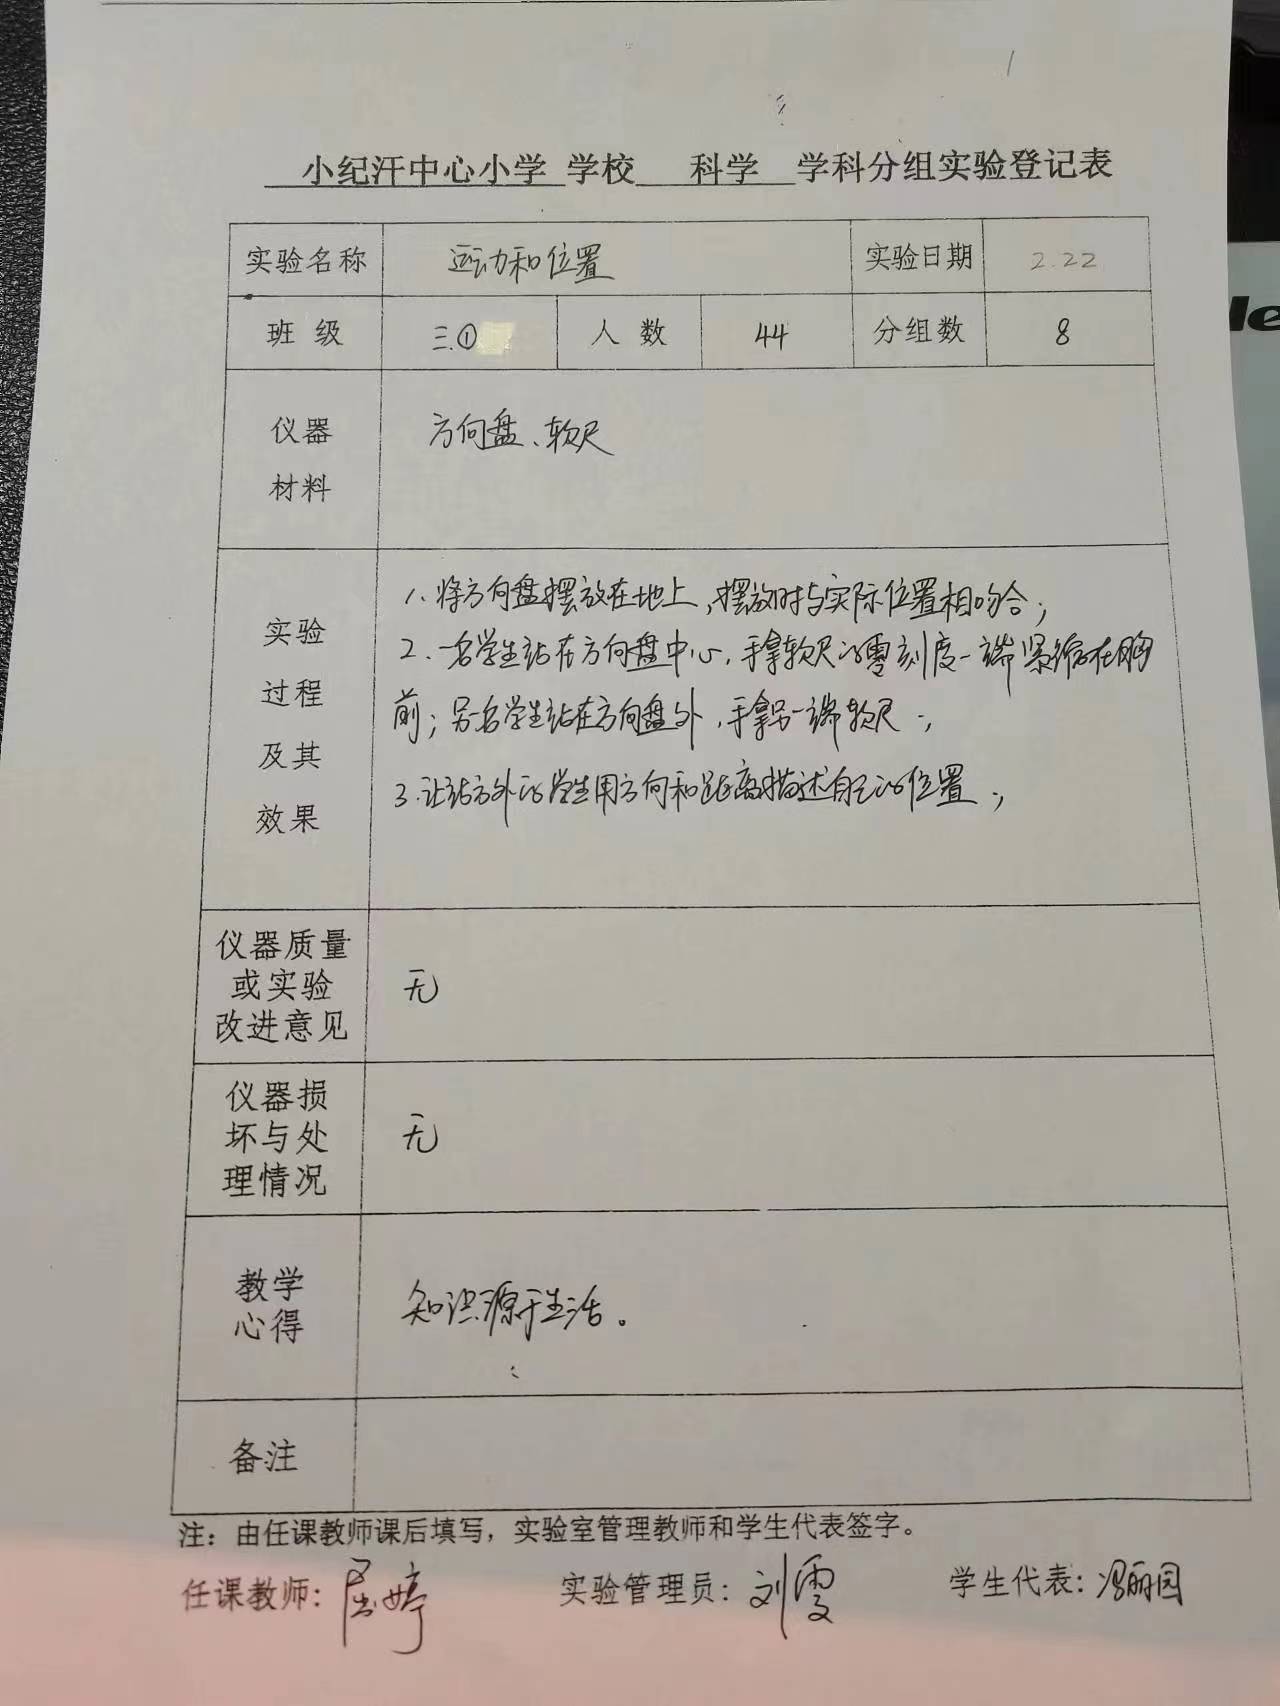 小纪汗中心小学 学校 科学 学科分组实验登记表
实验名称 运动和位置 实验日期 2.22
班级 三① 人数 44 分组数 8
仪器材料 方向盘、软尺
实验过程及其效果
1.将方向盘摆放在地上,摆放时与实际位置相吻合;
2.一名学生站在方向盘中心,手拿软尺的零刻度一端紧缩在胸
前;另一名学生站在方向盘外,手拿另一端软尺;
3.让站方外的学生用方向和距离描述自己的位置;
仪器质量或实验改进意见 无
仪器损坏与处理情况 无
教学心得 知识源于生活。
备注
注:由任课教师课后填写,实验室管理教师和学生代表签字。
任课教师:屈婷 实验管理员:刘雯 学生代表:冯丽园